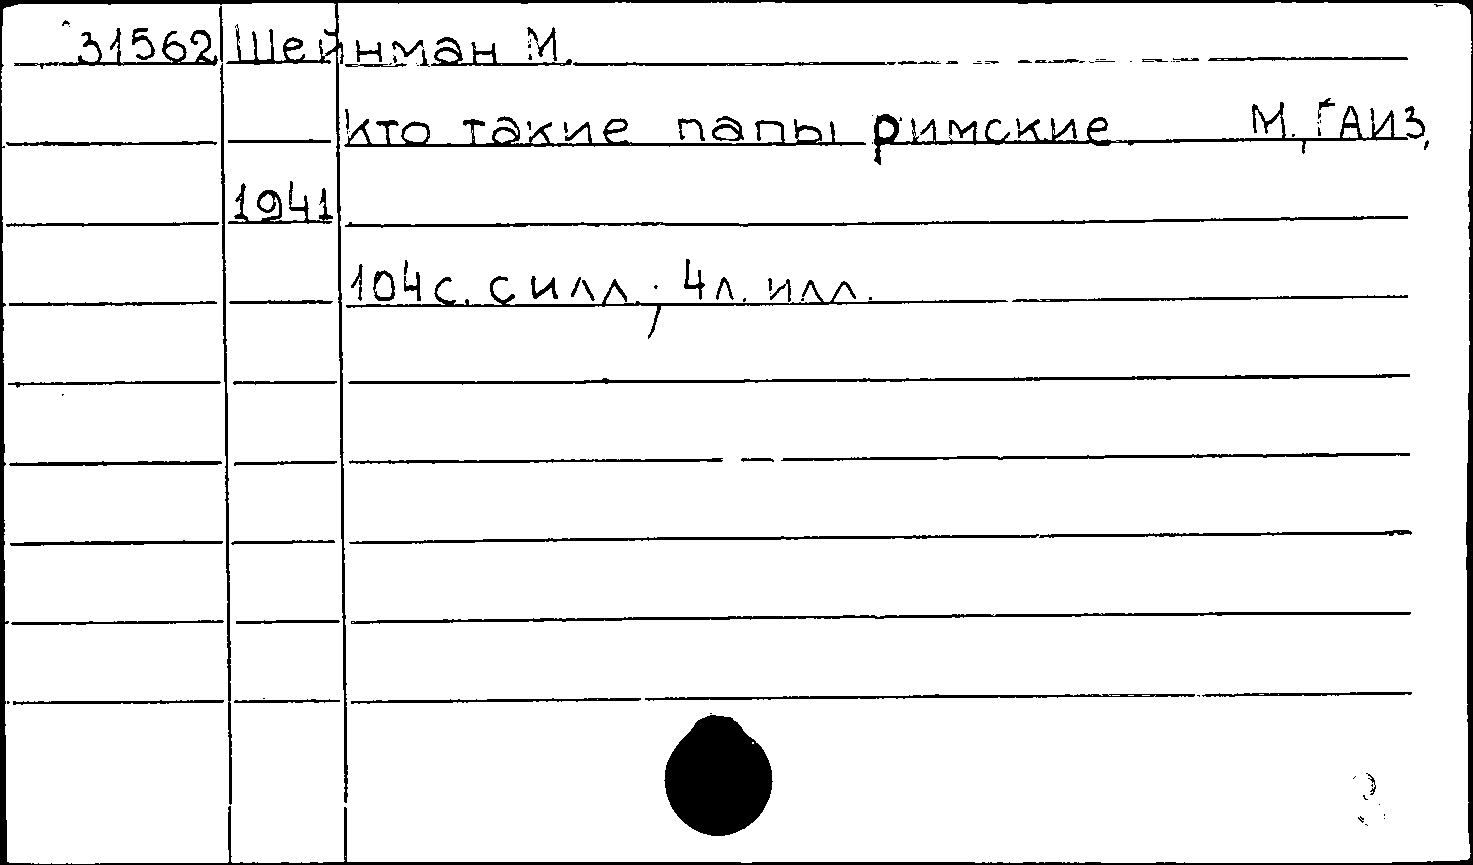 31562 Шейнман М.
кто такие папы римские. М., ГАИЗ,
1941
104с. с илл.; 4л. илл.